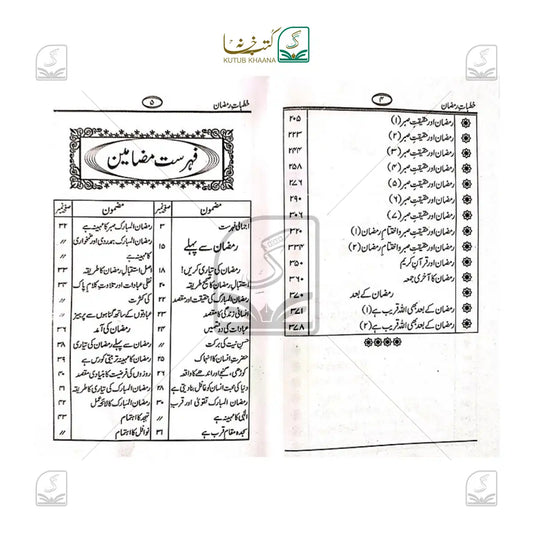 کتب خانہ
KUTUB KHAANA
خطباتِ رمضان
۴
رمضان اور حقیقتِ صبر (۱) ۲۰۵
رمضان اور حقیقتِ صبر (۲) ۲۲۳
رمضان اور حقیقتِ صبر (۳) ۲۴۴
رمضان اور حقیقتِ صبر (۴) ۲۵۸
رمضان اور حقیقتِ صبر (۵) ۲۷۶
رمضان اور حقیقتِ صبر (۶) ۲۹۰
رمضان اور حقیقتِ صبر (۷) ۳۰۶
رمضان اور حقیقتِ صبر و اختتامِ رمضان (۱) ۳۲۰
رمضان اور حقیقتِ صبر و اختتامِ رمضان (۲) ۳۳۳
رمضان اور قرآن کریم ۳۵۰
رمضان کا آخری جمعہ ۳۶۰
رمضان کے بعد ۳۷۰
رمضان کے بعد بھی اللہ قریب ہے (۱) ۳۷۱
رمضان کے بعد بھی اللہ قریب ہے (۲) ۳۷۸
خطباتِ رمضان
۵
فہرست مضامین
مضمون صفحہ نمبر
اجمالی فہرست ۳
رمضان سے پہلے ۱۵
رمضان کی تیاری کریں! ۱۸
استقبالِ رمضان کا صحیح طریقہ ۲۰
رمضان المبارک کی حقیقت اور مقصد ۲۲
انسانی زندگی کا مقصد ۲۳
عبادات کی دو قسمیں ۲۴
حسن نیت کی برکت ۲۵
حضرت انسان کا انہماک ۲۵
کوڑھی، گنجے اور اندھے کا واقعہ ۲۶
دنیا کی محبت انسان کو غافل بنا دیتی ہے ۲۸
رمضان المبارک تقویٰ اور قرب ۳۰
الٰہی کا مہینہ ہے 〃
سجدہ مقامِ قرب ہے ۳۱
مضمون صفحہ نمبر
رمضان المبارک صبر کا مہینہ ہے ۳۲
رمضان المبارک ہمدردی اور غمخواری 〃
کا مہینہ ہے
اصل استقبالِ رمضان کا طریقہ ۳۳
نفلی عبادات اور تلاوتِ کلام پاک ۳۴
کی کثرت
عبادتوں کے ساتھ گناہوں سے پرہیز ۳۵
رمضان کی آمد ۳۶
رمضان سے پہلے رمضان کی تیاری ۳۸
رمضان کا مہینہ تربیتی کورس ہے ۳۹
روزوں کی فرضیت کا بنیادی مقصد ۴۰
رمضان المبارک کی تیاری کا طریقہ ۴۱
رمضان المبارک کا لائحہ عمل ۴۲
تہجد کا اہتمام ۴۳
نوافل کا اہتمام 〃